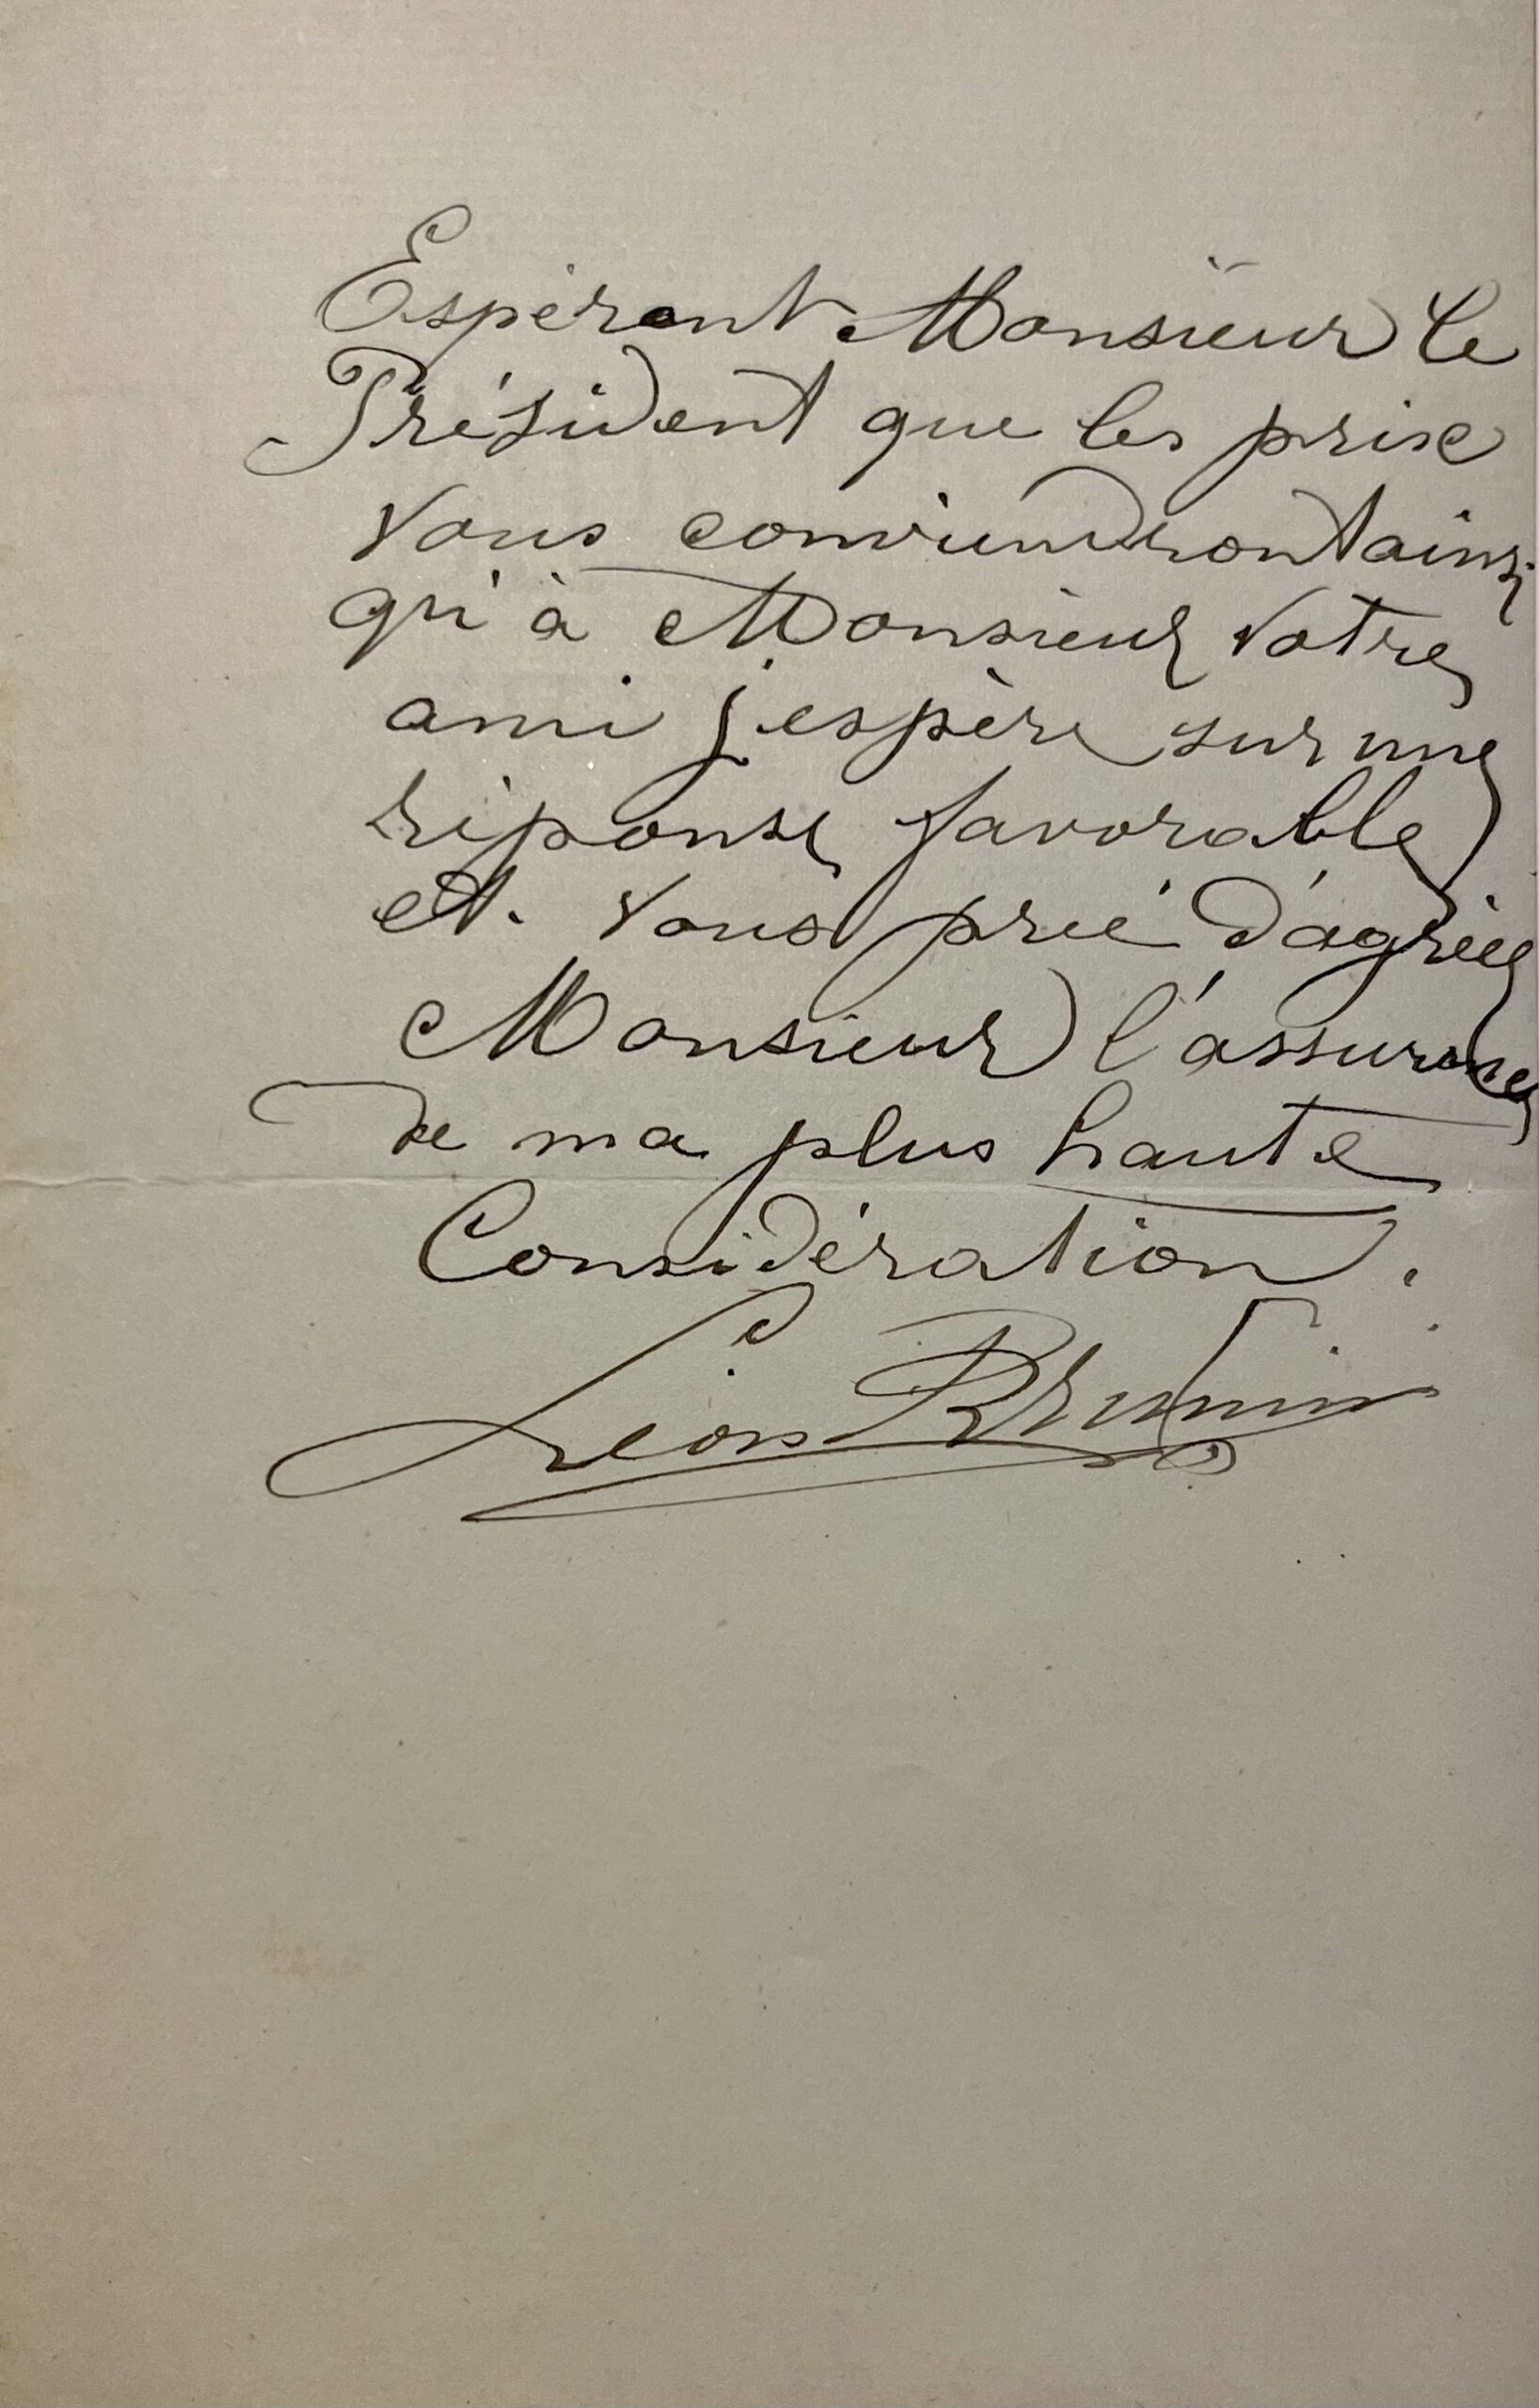 Espérant Monsieur le
Président que les prix
vous conviendront ainsi
qu'à Monsieur votre
ami j'espère sur une
réponse favorable
et vous prie d'agréer
Monsieur l'assurance
de ma plus haute
Considération.
Léon